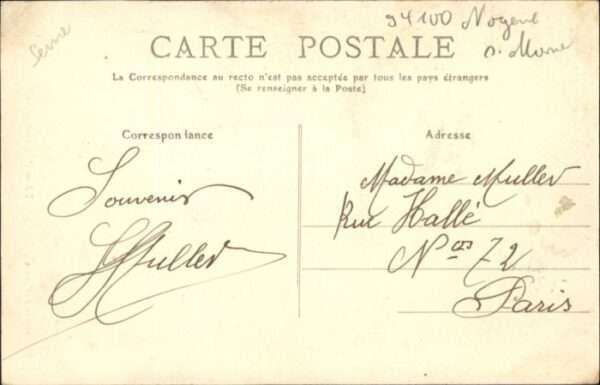 Seine
94100 Nogent
s. Marne
CARTE POSTALE
La Correspondance au recto n'est pas acceptée par tous les pays étrangers
(Se renseigner à la Poste)
Correspondance
Adresse
Souvenir
Muller
Madame Muller
Rue Hallé
Nos 72
Paris